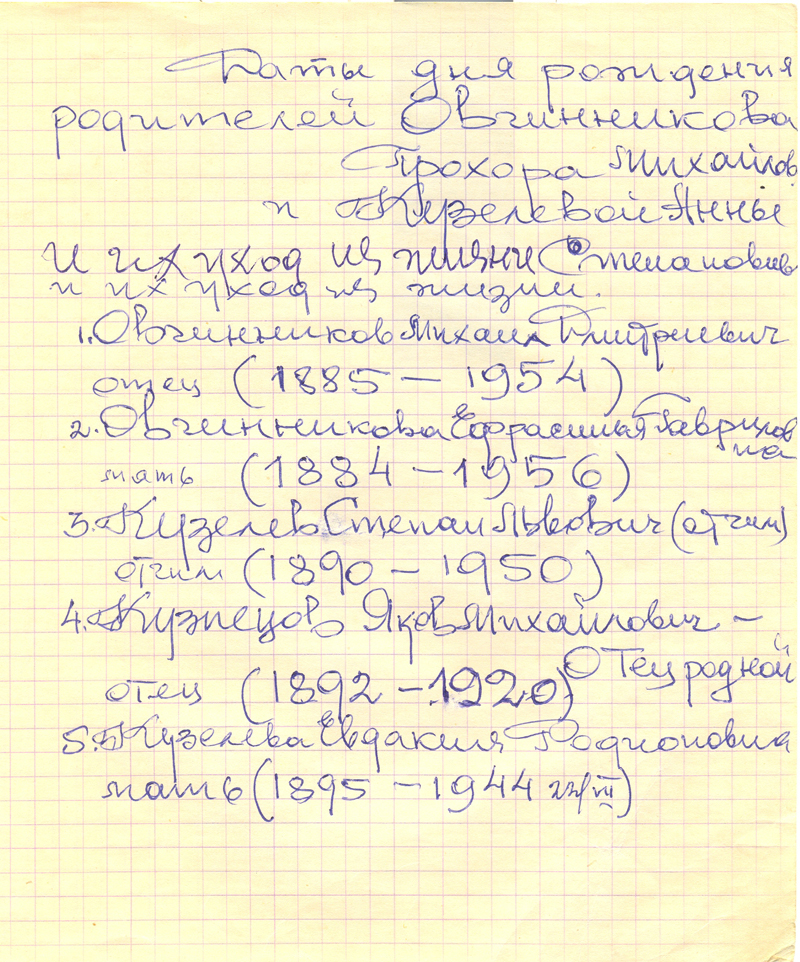 Даты дня рождения
родителей Овчинникова
Прохора Михайлов
и Кузелевой Анны
И их уход из жизни Степановны
и их уход из жизни.
1. Овчинников Михаил Дмитриевич
отец (1885 – 1954)
2. Овчинникова Ефрасинья Гаврилов
на
мать (1884 – 1956)
3. Кузелев Степан Львович (отчим)
отчим (1890 – 1950)
4. Кузнецов Яков Михайлович –
Отец родной
отец (1892 – 1920)
5. Кузелева Евдакия Родионовна
мать (1895 – 1944 /VII)